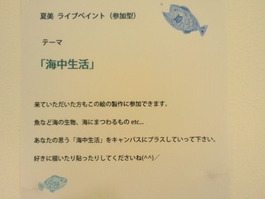 夏美 ライブペイント（参加型）
テーマ
「海中生活」
来ていただいた方もこの絵の製作に参加できます。
魚など海の生物、海にまつわるもの etc...
あなたの思う「海中生活」をキャンバスにプラスしていって下さい。
好きに描いたり貼ったりしてくださいね(^^)／